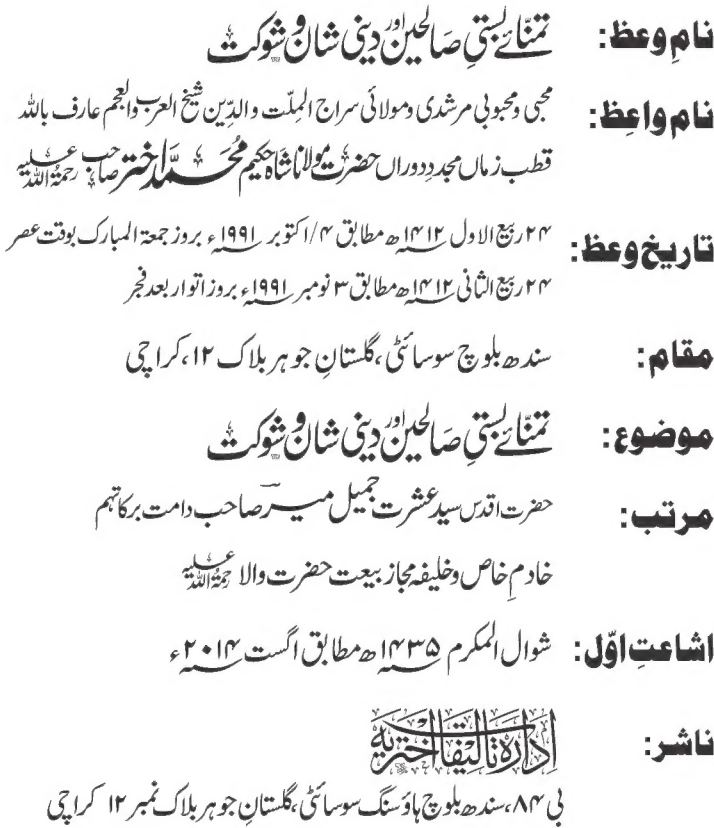 نامِ وعظ: تمنّائے بستیِ صالحین اور دینی شان و شوکت
نام واعِظ: محبی و محبوبی مرشدی و مولائی سراج المِلّت والدِّین شیخ العرب والعجم عارف باللہ
قطب زماں مجددِ دوراں حضرت مولانا شاہ حکیم محمد اختر صاحب رحمۃ اللہ علیہ
تاریخ وعظ: ۲۴ ربیع الاول ۱۴۱۲ھ مطابق ۴/اکتوبر ۱۹۹۱ء بروز جمعۃ المبارک بوقت عصر
۲۴ ربیع الثانی ۱۴۱۲ھ مطابق ۳ نومبر ۱۹۹۱ء بروز اتوار بعد فجر
مقام: سندھ بلوچ سوسائٹی، گلستانِ جوہر بلاک ۱۲، کراچی
موضوع: تمنّائے بستیِ صالحین اور دینی شان و شوکت
مرتب: حضرت اقدس سید عشرت جمیل میر صاحب دامت برکاتہم
خادمِ خاص و خلیفہ مجاز بیعت حضرت والا رحمۃ اللہ علیہ
اشاعتِ اوّل: شوال المکرم ۱۴۳۵ھ مطابق اگست ۲۰۱۴ء
ناشر: اِدَارَہ تَالِیفَاتِ اَختَرِیَہ
بی ۸۴، سندھ بلوچ ہاؤسنگ سوسائٹی، گلستانِ جوہر بلاک نمبر ۱۲ کراچی